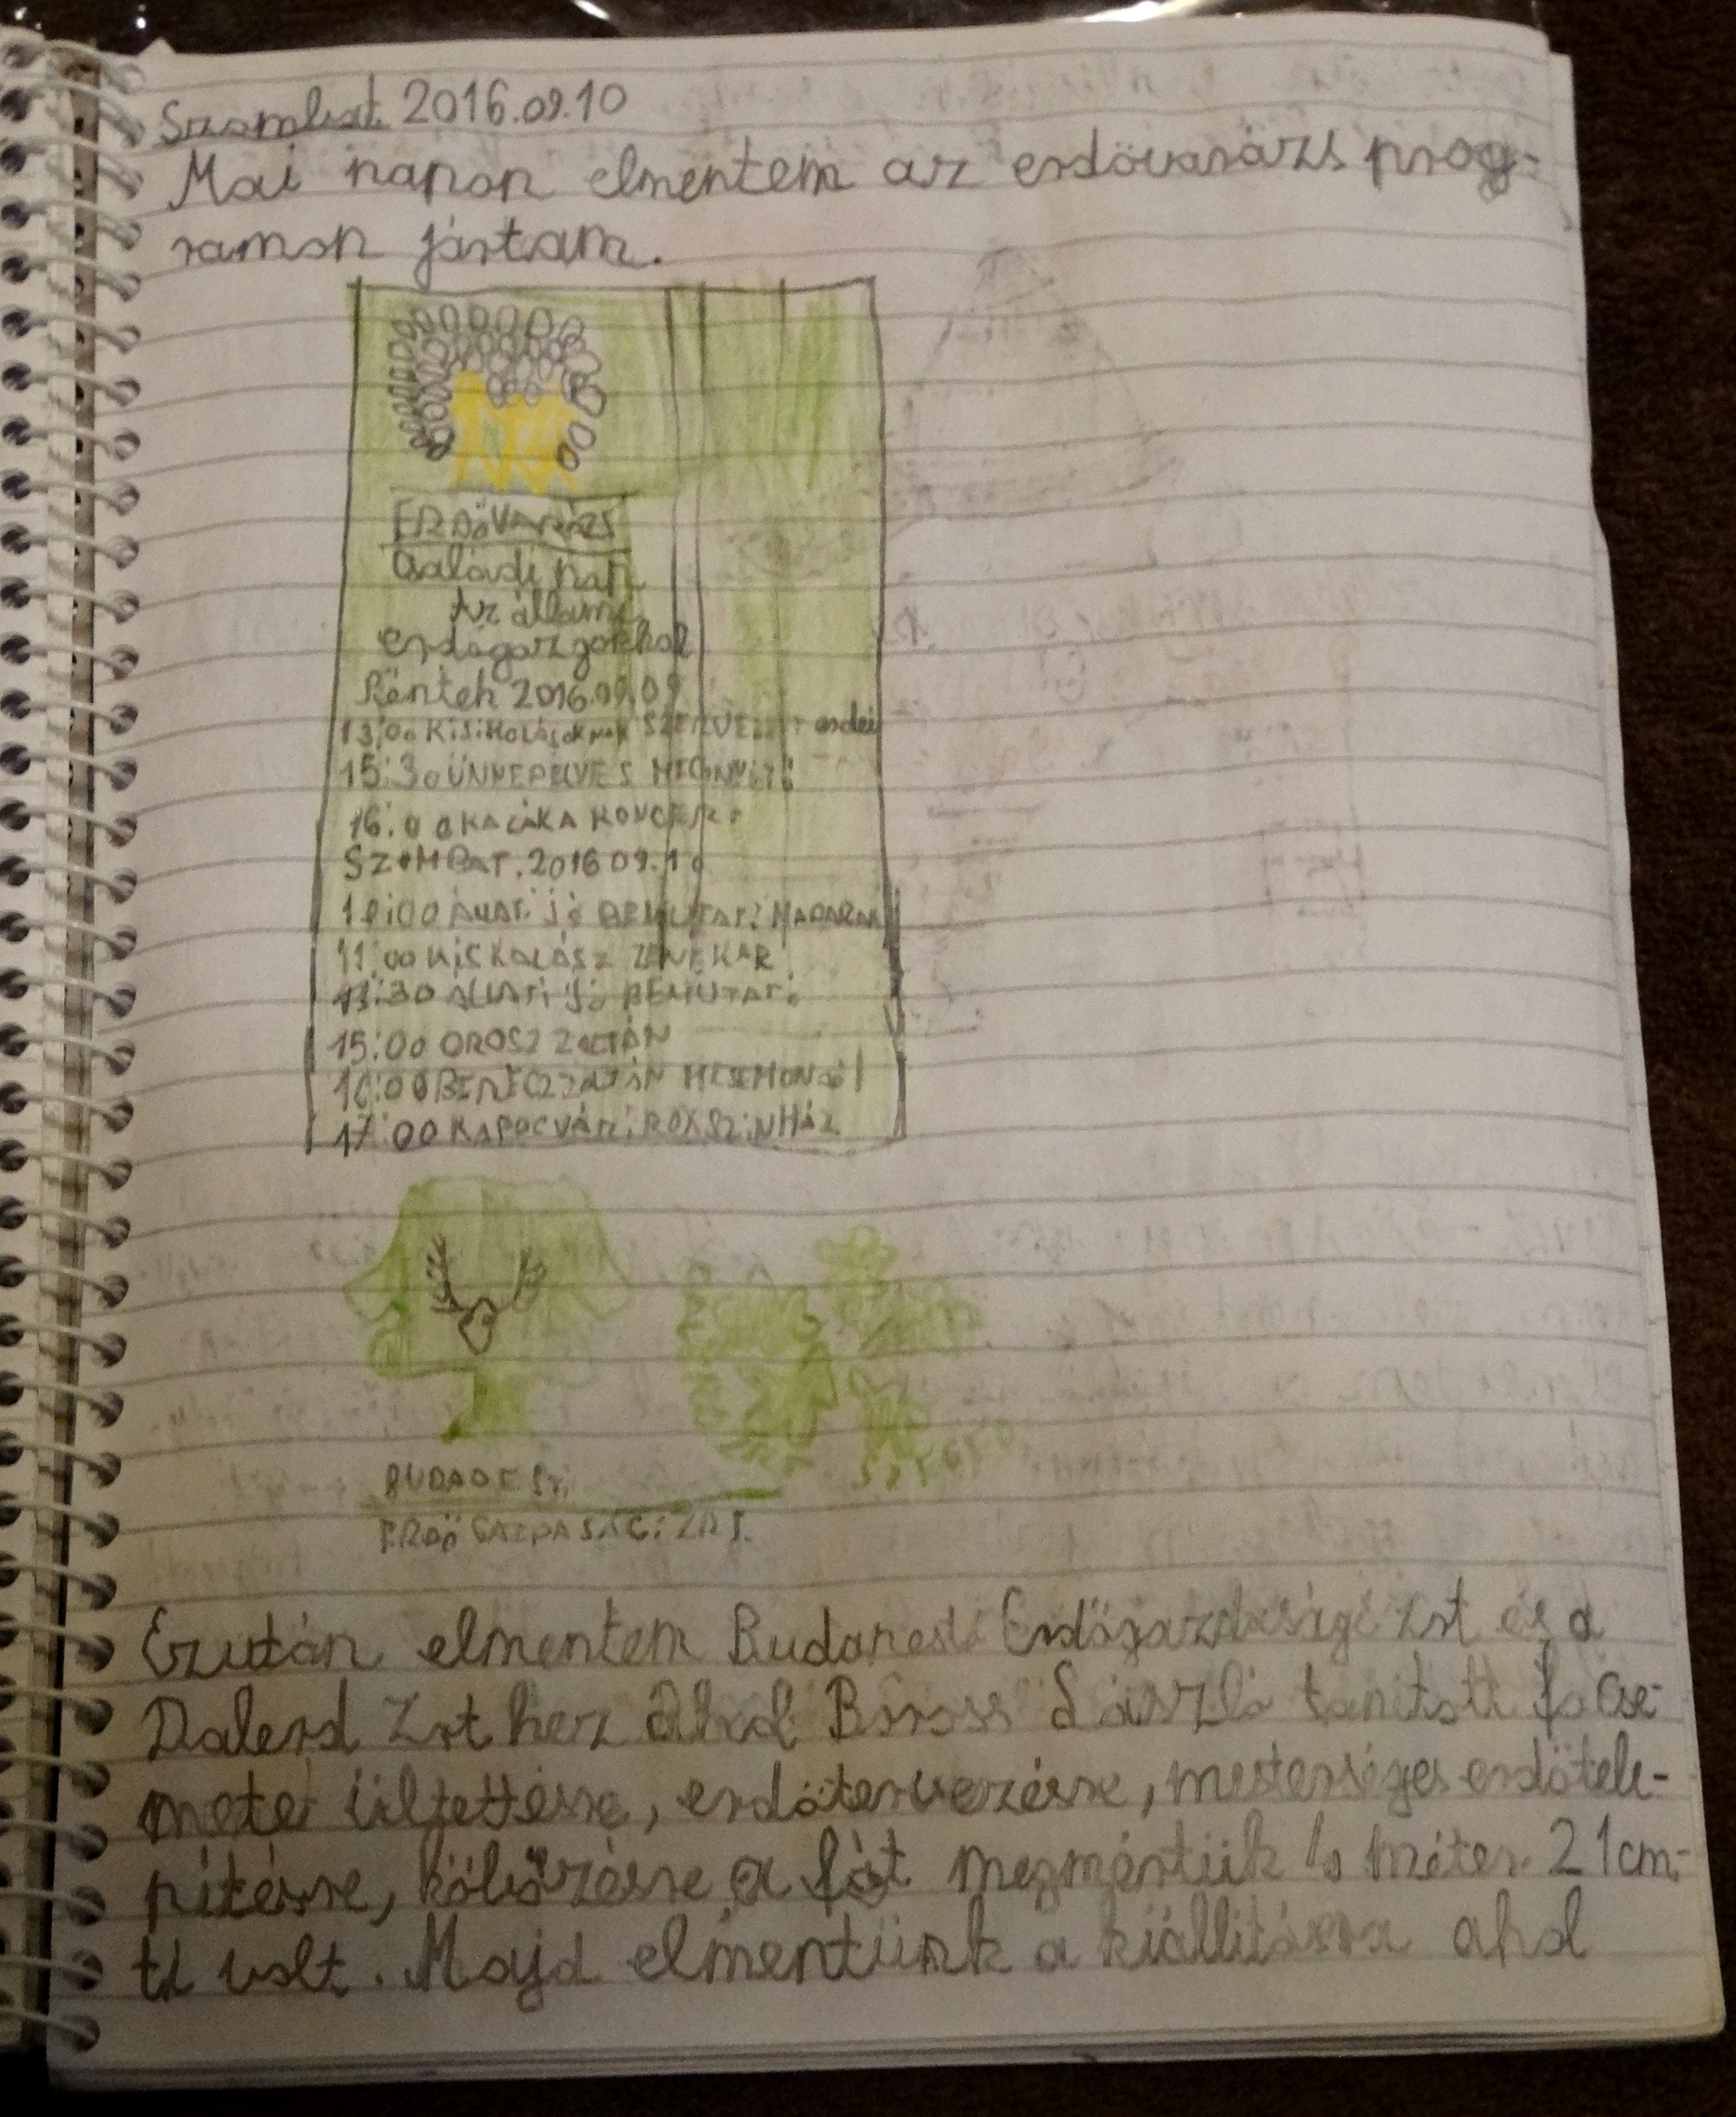 Szombat 2016.09.10
Mai napon elmentem az erdövarázs prog-
ramon jártam.
ERDÖVARÁZS
Családi nap
Az állami
erdögazgokkal
Péntek 2016.09.09
13:00 KISIKOLÁSOKNAK SZERVEZETT erdei
15:30 ÜNNEPELYES MEGNYITÓ
16:00 KALÁKA KONCERT
SZOMBAT. 2016 09.10
10:00 BEMUTATÓ MADARAK
11:00 KISKALÁSZ ZENEKAR
11:30 BEMUTATÓ
15:00 OROSZ ZOLTÁN
16:00 ZOLTÁN MESEMONDÓ
17:00 KAPOCVÁRI ROKSZINHÁZ
BUDAPESTI
SZEGED
ERDÖGAZDASÁGI ZRT.
Ezután elmentem Budapesti Erdögazdasági zrt és a
Dalerd Zrt hez Ahol Boross László tanitott fa cse-
mete ültettésre, erdötervezésre, mesterséges erdötele-
pitésre, a fát megmértük méter 21cm-
volt. Majd elmentünk a kiállitásra ahol